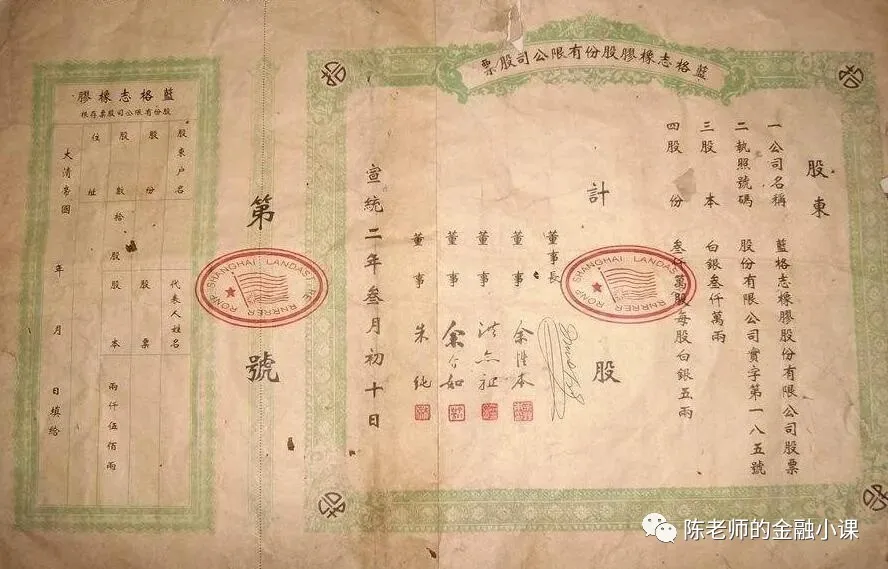 藍格志橡膠股份有限公司股票
股東
一公司名稱 藍格志橡膠股份有限公司股票
二執照號碼 股份有限公司實字第一八五號
三股本 白銀叁仟萬兩
四股份 叁仟萬股每股白銀五兩
計 股
SHANGHAI RNRRER RONP
董事長
董事
董事
董事
董事 朱純
宣統二年叁月初十日
第 號
SHANGHAI RNRRER RONP
藍格志橡膠
股份有限公司股票存根
股東户名 代表人姓名
股份 股票
股數 拾股 股本 兩仟伍佰兩
住址
大清帝國 年 月 日填給
陈老师的金融小课